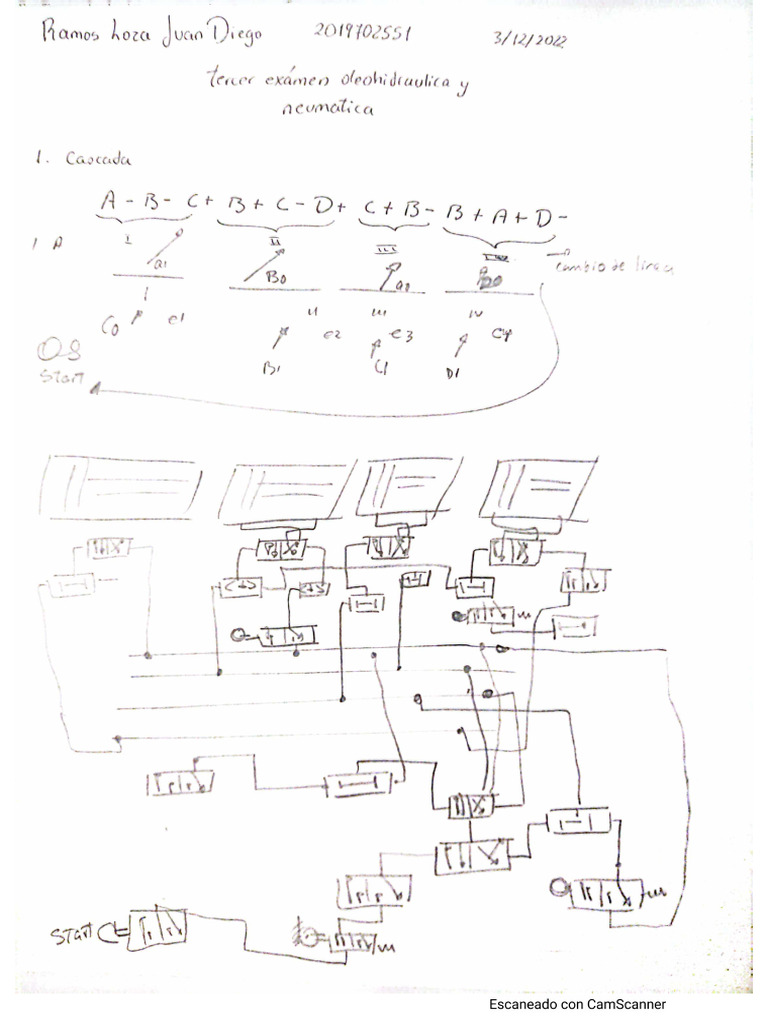 Ramos Loza Juan Diego 2019702551 3/12/2022
tercer exámen oleohidraulica y
neumática
1. Cascada
A - B - C + B + C - D + C + B - B + A + D -
I II III
a1 B0 a0 cambio de linea
I II III IV
C0 e1 e2 e3 e4
B1 C1 D1
Start
Start
Escaneado con CamScanner